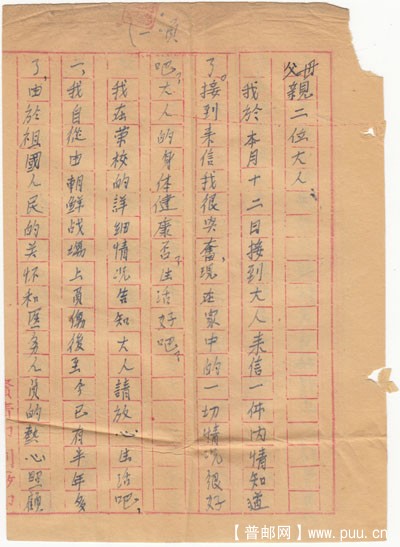 （一頁
父母親二位大人：
我於本月十二日接到大人來信一件内情知道
了。接到来信我很兴奮，現在家中的一切情况很好
吧？大人的身体健康否？生活好吧？
我在荣校的詳細情况告知大人請放心生活吧，
一、我自從由朝鮮战場上負傷後至今已有半年多
了，由於祖國人民的关怀和医务人员的熱心照顧
【普邮网】www.puu.cn